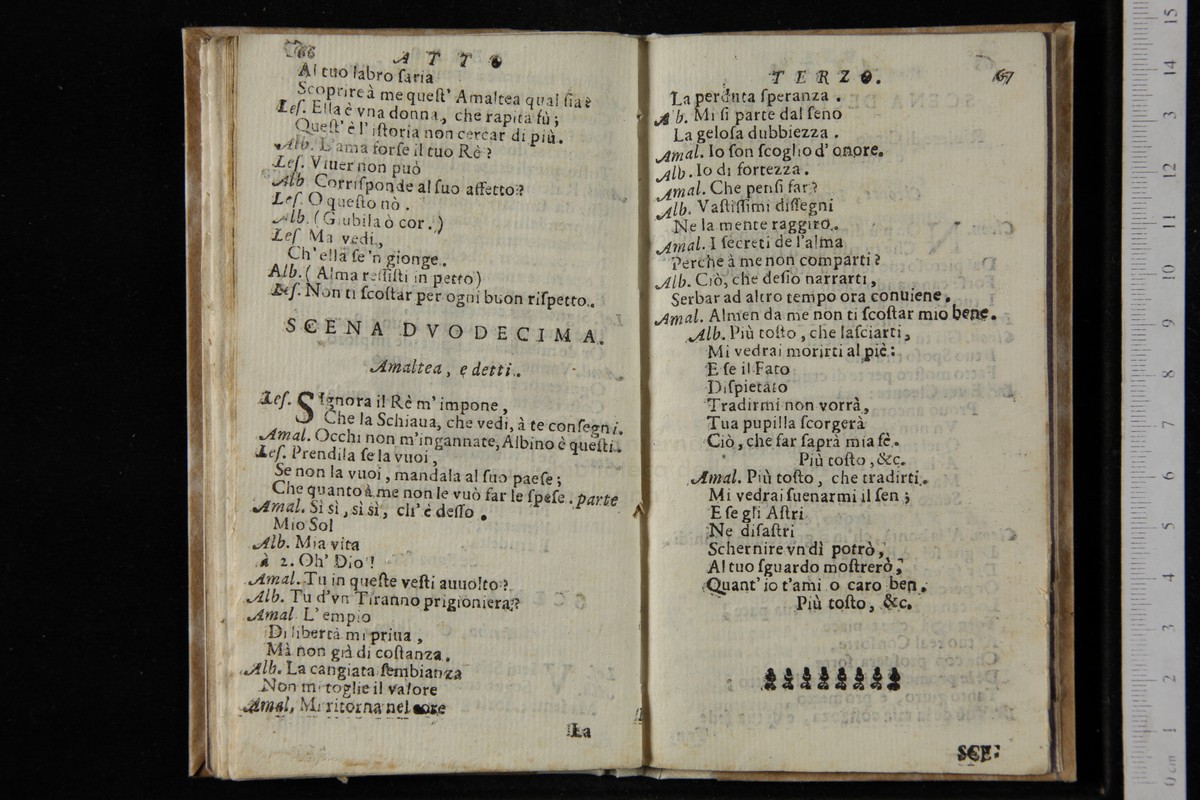 66 ATTO
Al tuo labro ſaria
Scoprire à me queſt' Amaltea qual ſia?
Leſ. Ella è vna donna, che rapita fù;
Queſt' è l' iſtoria non cercar di più.
Alb. L'ama forſe il tuo Rè?
Leſ. Viuer non può
Alb. Corriſponde al ſuo affetto?
Leſ. O queſto nò.
Alb. (Giubila ò cor.)
Leſ Ma vedi,
Ch' ella ſe 'n gionge.
Alb. (Alma reſſiſti in petto)
Leſ. Non ti ſcoſtar per ogni buon riſpetto.
SCENA DVODECIMA.
Amaltea, e detti.
Leſ. SIgnora il Rè m' impone,
Che la Schiaua, che vedi, à te conſegni.
Amal. Occhi non m'ingannate, Albino è queſti.
Leſ. Prendila ſe la vuoi,
Se non la vuoi, mandala al ſuo paeſe;
Che quanto à me non le vuò far le ſpeſe. parte
Amal. Sì sì, sì sì, ch' è deſſo.
Mio Sol
Alb. Mia vita
à 2. Oh' Dio!
Amal. Tu in queſte veſti auuolto?
Alb. Tu d'vn Tiranno prigioniera?
Amal. L' empio
Di libertà mi priua,
Mà non già di coſtanza.
Alb. La cangiata ſembianza
Non mi toglie il valore
Amal. Mi ritorna nel core
La
TERZO. 67
La perduta ſperanza.
Alb. Mi ſi parte dal ſeno
La geloſa dubbiezza.
Amal. Io ſon ſcoglio d' onore.
Alb. Io di fortezza.
Amal. Che penſi far?
Alb. Vaſtiſſimi diſſegni
Ne la mente raggiro.
Amal. I ſecreti de l'alma
Perche à me non comparti?
Alb. Ciò, che deſio narrarti,
Serbar ad altro tempo ora conuiene.
Amal. Almen da me non ti ſcoſtar mio bene.
Alb. Più toſto, che laſciarti,
Mi vedrai morirti al piè:
E ſe il Fato
Diſpietato
Tradirmi non vorrà,
Tua pupilla ſcorgerà
Ciò, che far ſaprà mia fè.
Più toſto, &c.
Amal. Più toſto, che tradirti.
Mi vedrai ſuenarmi il ſen;
E ſe gli Aſtri
Ne diſaſtri
Schernire vn dì potrò,
Al tuo ſguardo moſtrerò,
Quant' io t'ami o caro ben.
Più toſto, &c.
SCE-
15
14
13
12
11
10
9
8
7
6
5
4
3
2
1
0 cm